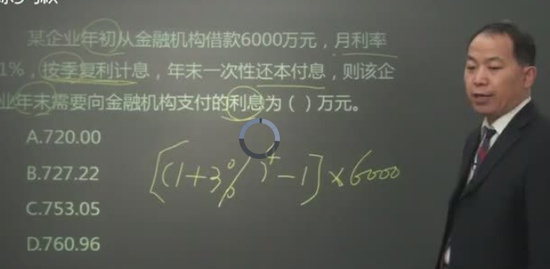 某企业年初从金融机构借款6000万元，月利率
1%，按季复利计息，年末一次性还本付息，则该企
业年末需要向金融机构支付的利息为（ ）万元。
A.720.00
B.727.22
C.753.05
D.760.96
[(1+3%)⁴-1]×6000